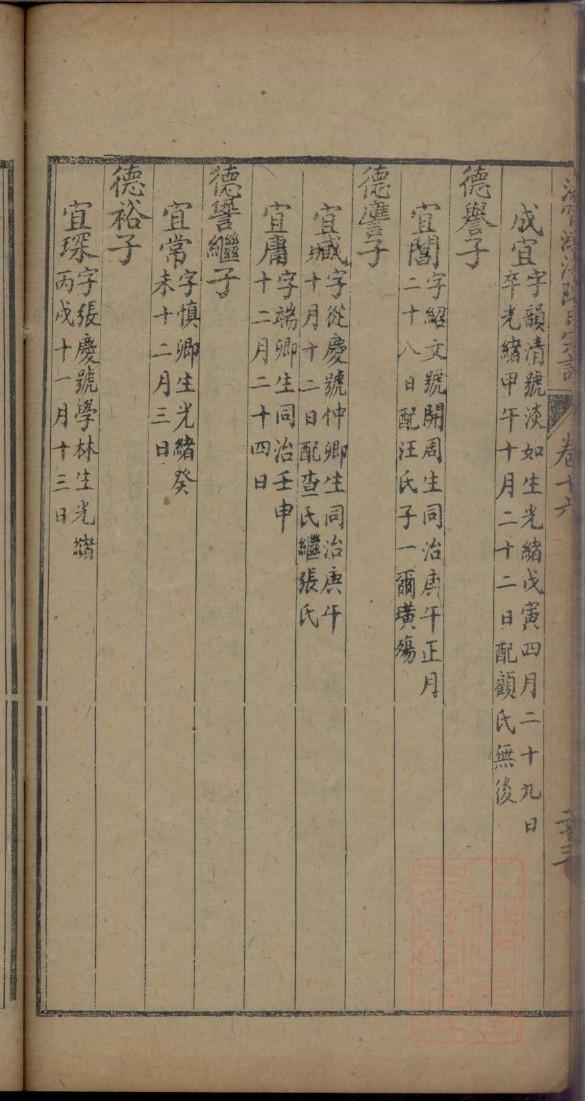 卷十六
成宜
字韻清號淡如生光緒戊寅四月二十九日
卒光緒甲午十月二十二日配顧氏無後
德譽子
宜閣
字紹文號開周生同治庚午正月
二十八日配汪氏子一爾璜殤
德讆子
宜臧
字從慶號仲卿生同治庚午
十月十二日配查氏繼張氏
宜庸
字端卿生同治壬申
十二月二十四日
德譻繼子
宜常
字慎卿生光緒癸
未十二月三日
德裕子
宜琛
字張慶號學林生光緒
丙戌十一月十三日